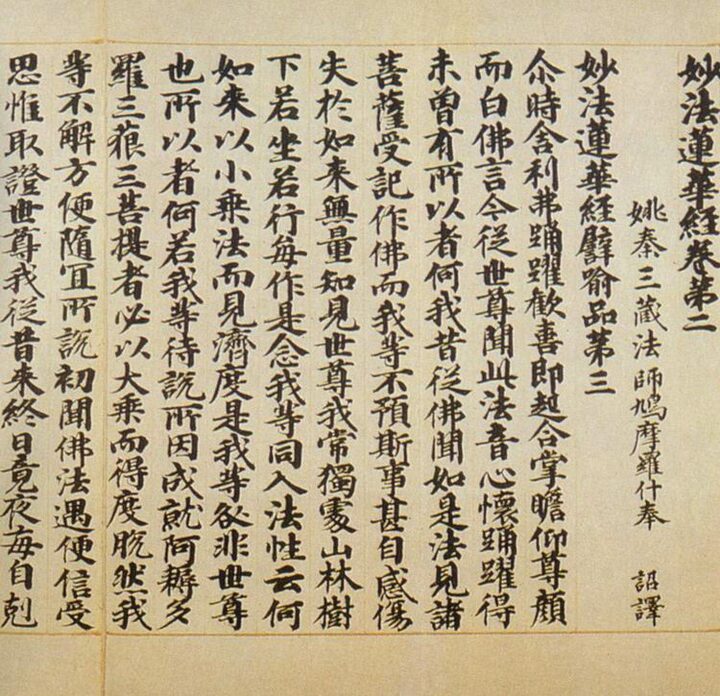 妙法蓮華経巻第二
姚秦三蔵法師鳩摩羅什奉 詔譯
妙法蓮華経譬喻品第三
尒時舎利弗踊躍歡喜即起合掌瞻仰尊顔
而白佛言今従世尊聞此法音心懷踊躍得
未曽有所以者何我昔従佛聞如是法見諸
菩薩受記作佛而我等不預斯事甚自感傷
失於如来無量知見世尊我常獨處山林樹
下若坐若行每作是念我等同入法性云何
如来以小乗法而見濟度是我等咎非世尊
也所以者何若我等待說所因成就阿耨多
羅三藐三菩提者必以大乗而得度脫然我
等不解方便隨冝所說初聞佛法遇便信受
思惟取證世尊我従昔来終日竟夜每自剋